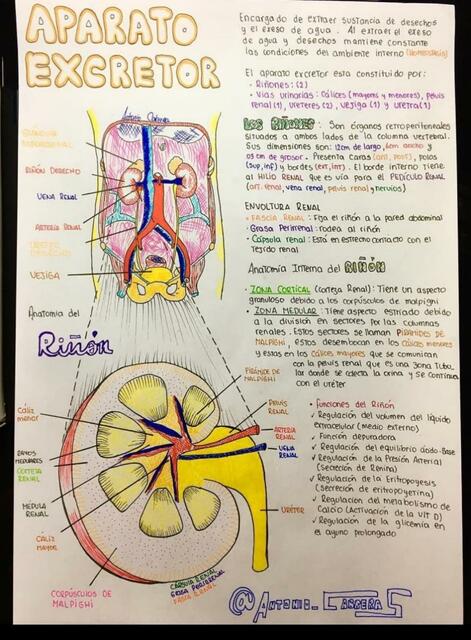 APARATO
EXCRETOR
Encargado de extraer sustancia de desechos
y el exeso de agua. Al extraer el exeso
de agua y desechos mantiene constante
las condiciones del ambiente interno (Homeostasis)
El aparato excretor esta constituido por:
· Riñones: (2)
· Vías urinarias: Cálices (mayores y menores), pelvis
renal (1), ureteres (2), vejiga (1) y uretra (1)
LOS RIÑONES: Son órganos retroperitoneales
situados a ambos lados de la columna vertebral.
Sus dimensiones son: 12cm de largo, 6cm ancho y
03 cm de grosor. Presenta caras (ant, post), polos
(sup, inf) y bordes (ext, int). El borde interno tiene
al HILIO RENAL que es vía para el PEDÍCULO RENAL
(art. renal, vena renal, pelvis renal y nervios)
ENVOLTURA RENAL
· FASCIA RENAL: Fija el riñón a la pared abdominal
· Grasa Perirrenal: rodea al riñón
· Cápsula renal: Está en estrecho contacto con el
Tejido renal
Anatomía Interna del RIÑÓN
· ZONA CORTICAL (corteza Renal): Tiene un aspecto
granuloso debido a los corpúsculos de malpighi
· ZONA MEDULAR: Tiene aspecto estriado debido
a la división en sectores por las columnas
renales. Estos sectores se llaman PIRÁMIDES DE
MALPIGHI, estos desembocan en los cálices menores
y estas en los cálices mayores que se comunican
con la pelvis renal que es una zona tubu
lar donde se colecta la orina y se continúa
con el uréter
RIÑÓN DERECHO
VENA RENAL
ARTERIA RENAL
URETER
DERECHO
VEJIGA
Anatomía del
Riñón
PIRÁMIDE DE
MALPIGHI
CALÍZ
menor
RAYOS
MEDULARES
CORTEZA
RENAL
MÉDULA
RENAL
CALÍZ
MAYOR
CORPÚSCULOS DE
MALPIGHI
CÁPSULA RENAL
GRASA PERIRRENAL
FASCIA RENAL
PELVIS
RENAL
ARTERIA
RENAL
VENA
RENAL
URÉTER
• Funciones del Riñón
✓ Regulación del volumen del líquido
extracelular (medio externo)
✓ Función depuradora
✓ Regulación del equilibrio ácido-Base
✓ Regulación de la Presión Arterial
(secreción de Renina)
✓ Regulación de la Eritropoyesis
(secreción de eritropoyetina)
✓ Regulación del metabolismo de
Calcio (Activación de la Vit D)
✓ Regulación de la glicemia en
el ayuno prolongado